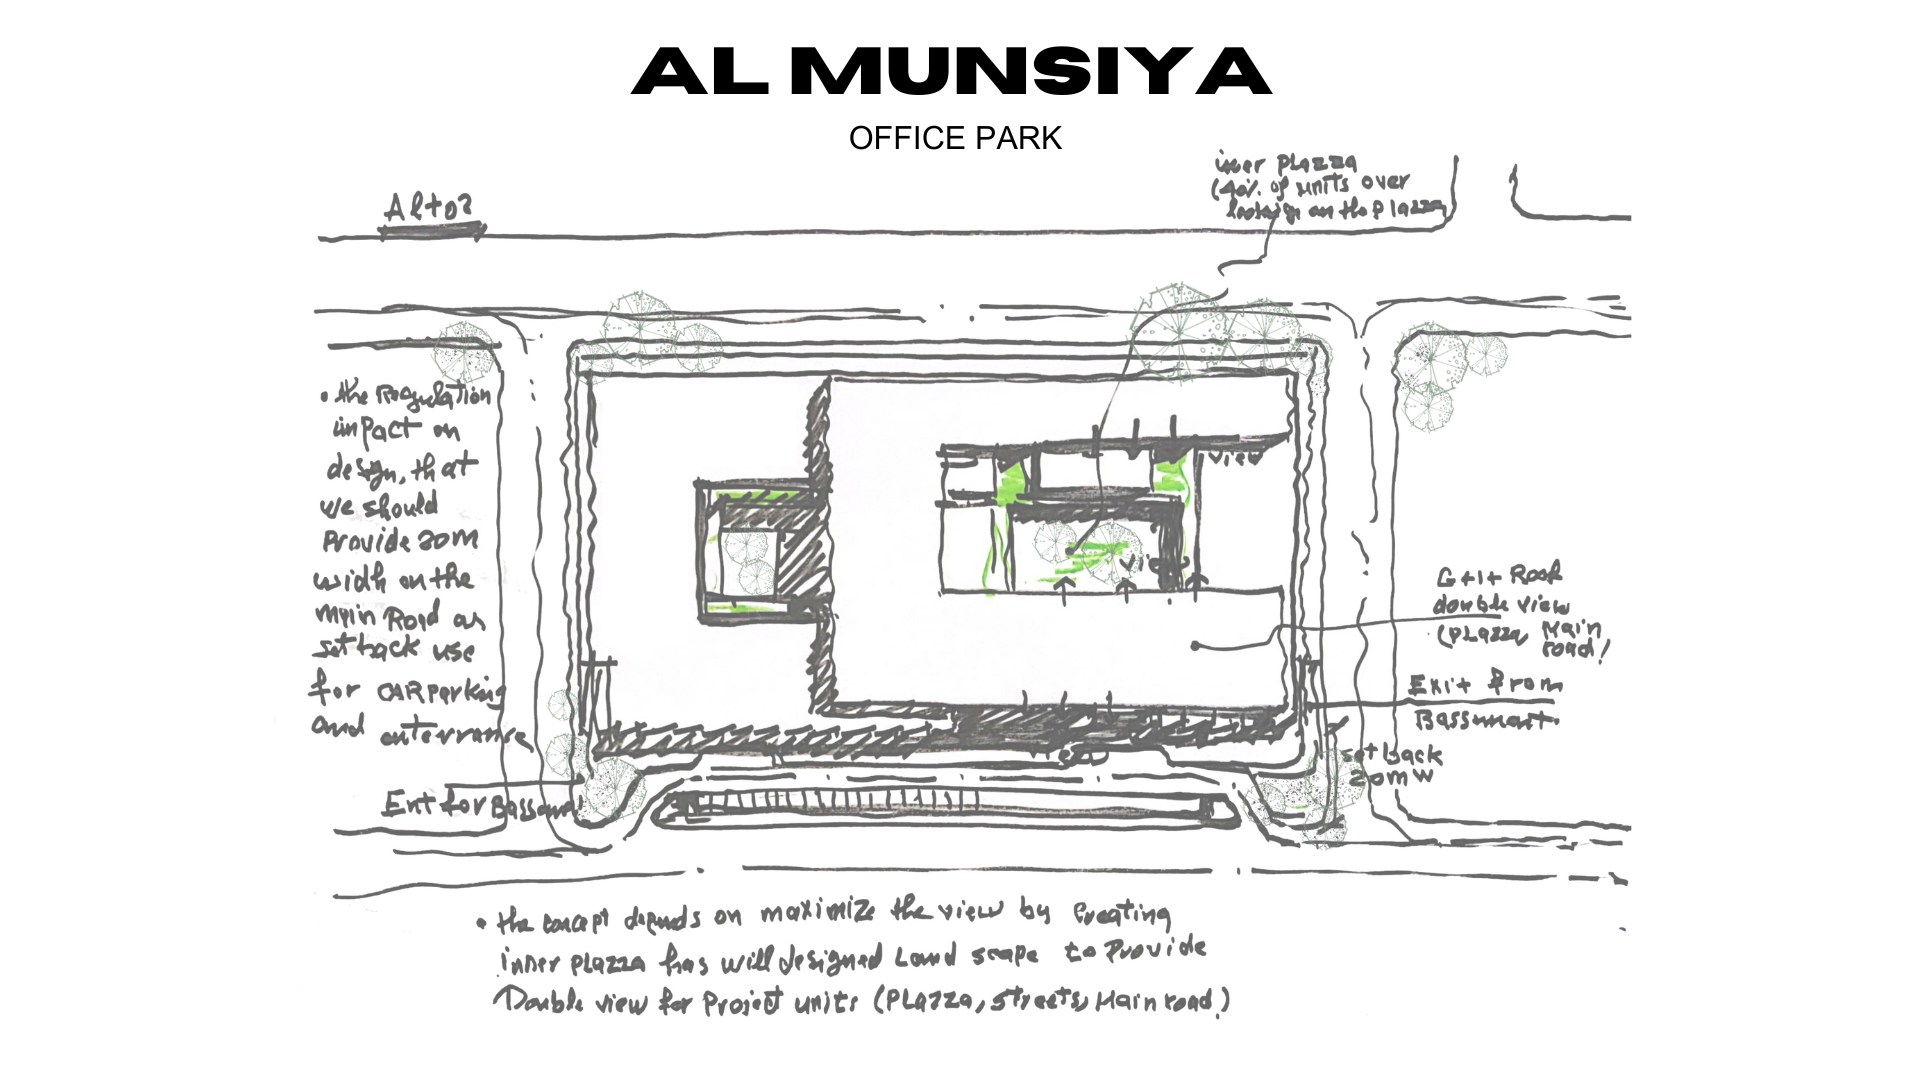 AL MUNSIYA
OFFICE PARK
inner Plazza
(40% of units over
looking on the Plazza
Alt02
• the Reagulation
impact on
design, that
we should
Provide 20m
widh on the
main Road as
setback use
for CAR parking
and enterrance
Ent for Bassement
view
view
view
G+1+ Roof
double view
(PLazza, Main
road)
Exit from
Bassment.
set back
20m W
• the concept depends on maximize the view by Creating
inner PLazza has will designed Land scape to Provide
Double view for Project units (PLazza, streets, Main road.)